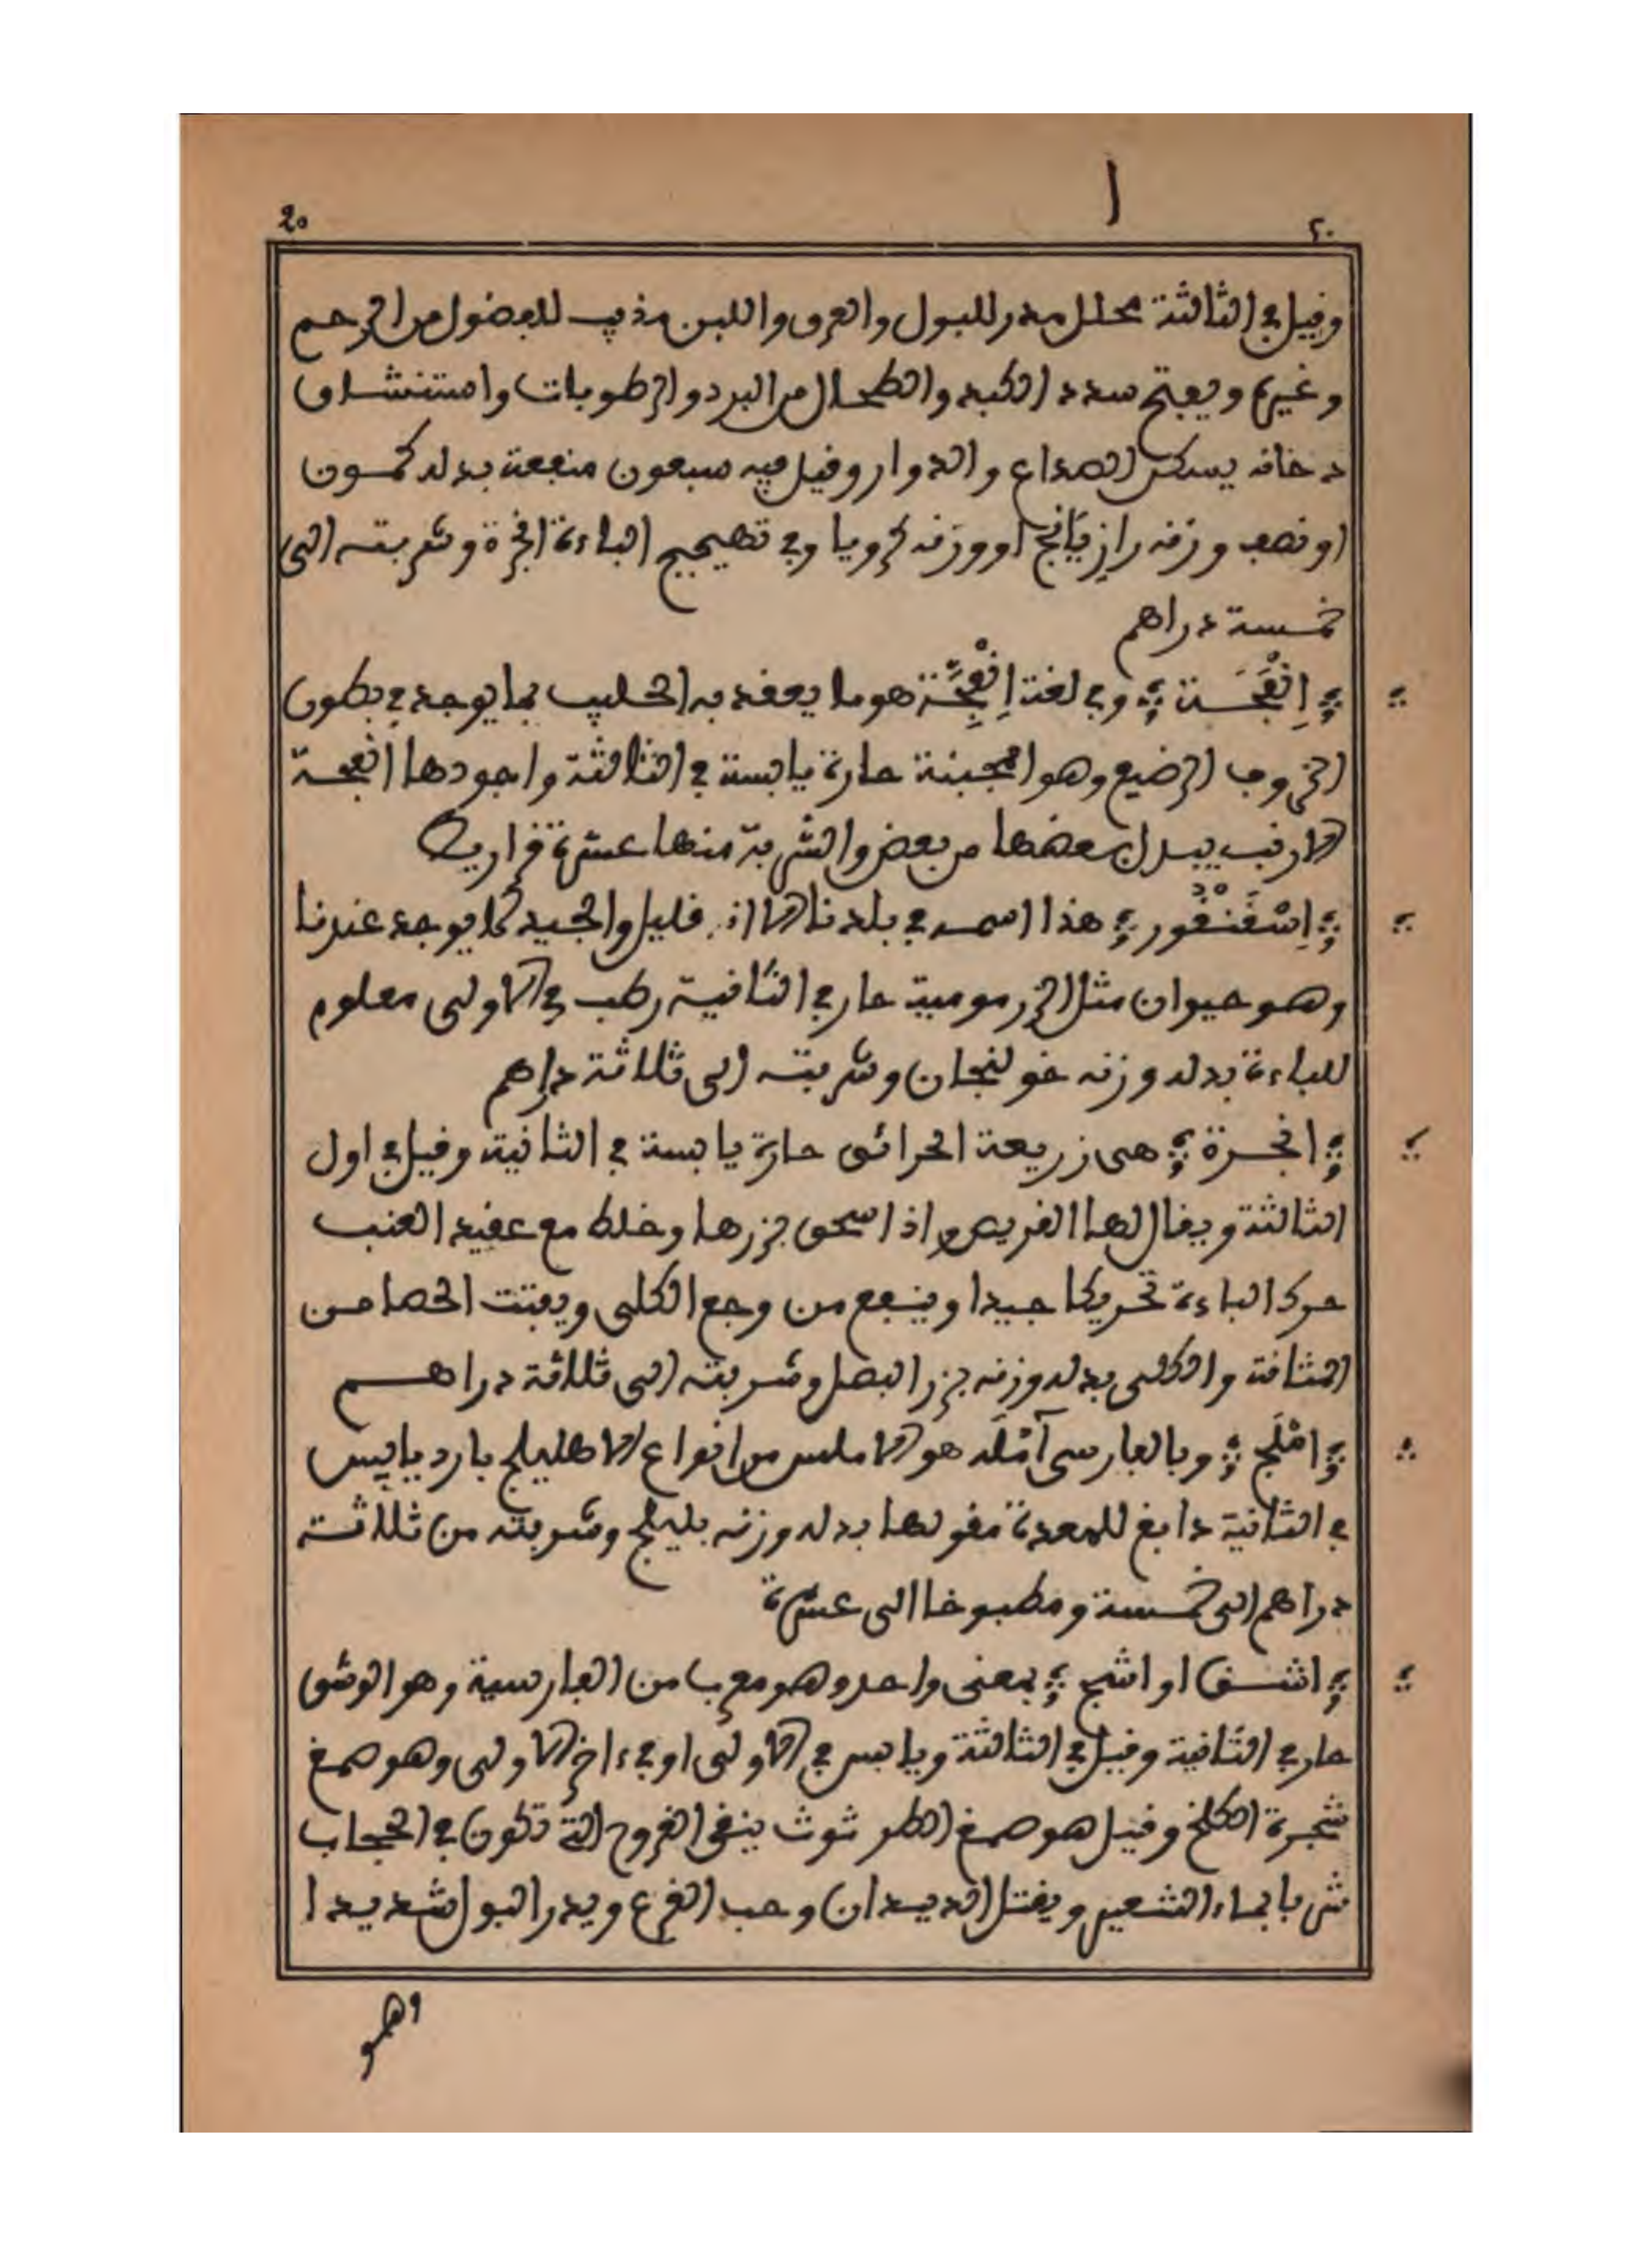 ا
20 ٢٠
وفيل في الثالثة محلل مدر للبول والعرق واللبن مذيب للفضول من الرحم
وغيره ويفتح سدد الكبد والطحال من البرد والرطوبات واستنشاق
دخانه يسكن الصداع والدوار وفيل فيه سبعون منفعة بدله كمون
او نصف وزنه رازيانج او وزنه كرويا وفي تهييج الباءة انجرة وشربته الى
خمسة دراهم
اِنْفَحَّة وفي لغة اِنْفِحَّة هو ما يعقد به الحليب مما يوجد في بطون
الخروف الرضيع وهو المجبنة حارة يابسة في الثالثة واجودها انفحة
الارنب يبدل بعضها من بعض والشربة منها عشرة قراريط
اِسْقَنْقُور هذا اسمه في بلدنا الاان قليل والجيد لا يوجد عندنا
وهو حيوان مثل الزرمومية حار في الثانية رطب في الاولى معلوم
للباءة بدله وزنه خولنجان وشربته الى ثلاثة دراهم
انجرة هي زريعة الحرائق حارة يابسة في الثانية وقيل في اول
الثالثة ويقال لها القريص واذا سحق بزرها وخلط مع عقيد العنب
حرك الباءة تحريكا جيدا وينفع من وجع الكلى ويفتت الحصا من
المثانة والكلى بدله وزنه بزر البصل وشربته الى ثلاثة دراهم
امْلَج وبالفارسي آمْلَه هو الاملس من انواع الاهليلج بارد يابس
في الثانية دابغ للمعدة مقو لها بدله وزنه بليلج وشربته من ثلاثة
دراهم الى خمسة ومطبوخا الى عشرة
اشق او اشج بمعنى واحد وهو معرب من الفارسية وهو الوشق
حار في الثانية وقيل في الثالثة ويابس في الاولى او في ءاخر الاولى وهو صمغ
شجرة الكلخ وقيل هو صمغ الطرثوث ينقي القروح التي تكون في الحجاب
شربا بماء الشعير ويقتل الديدان وحب القرع ويدر البول شديدا
وهو